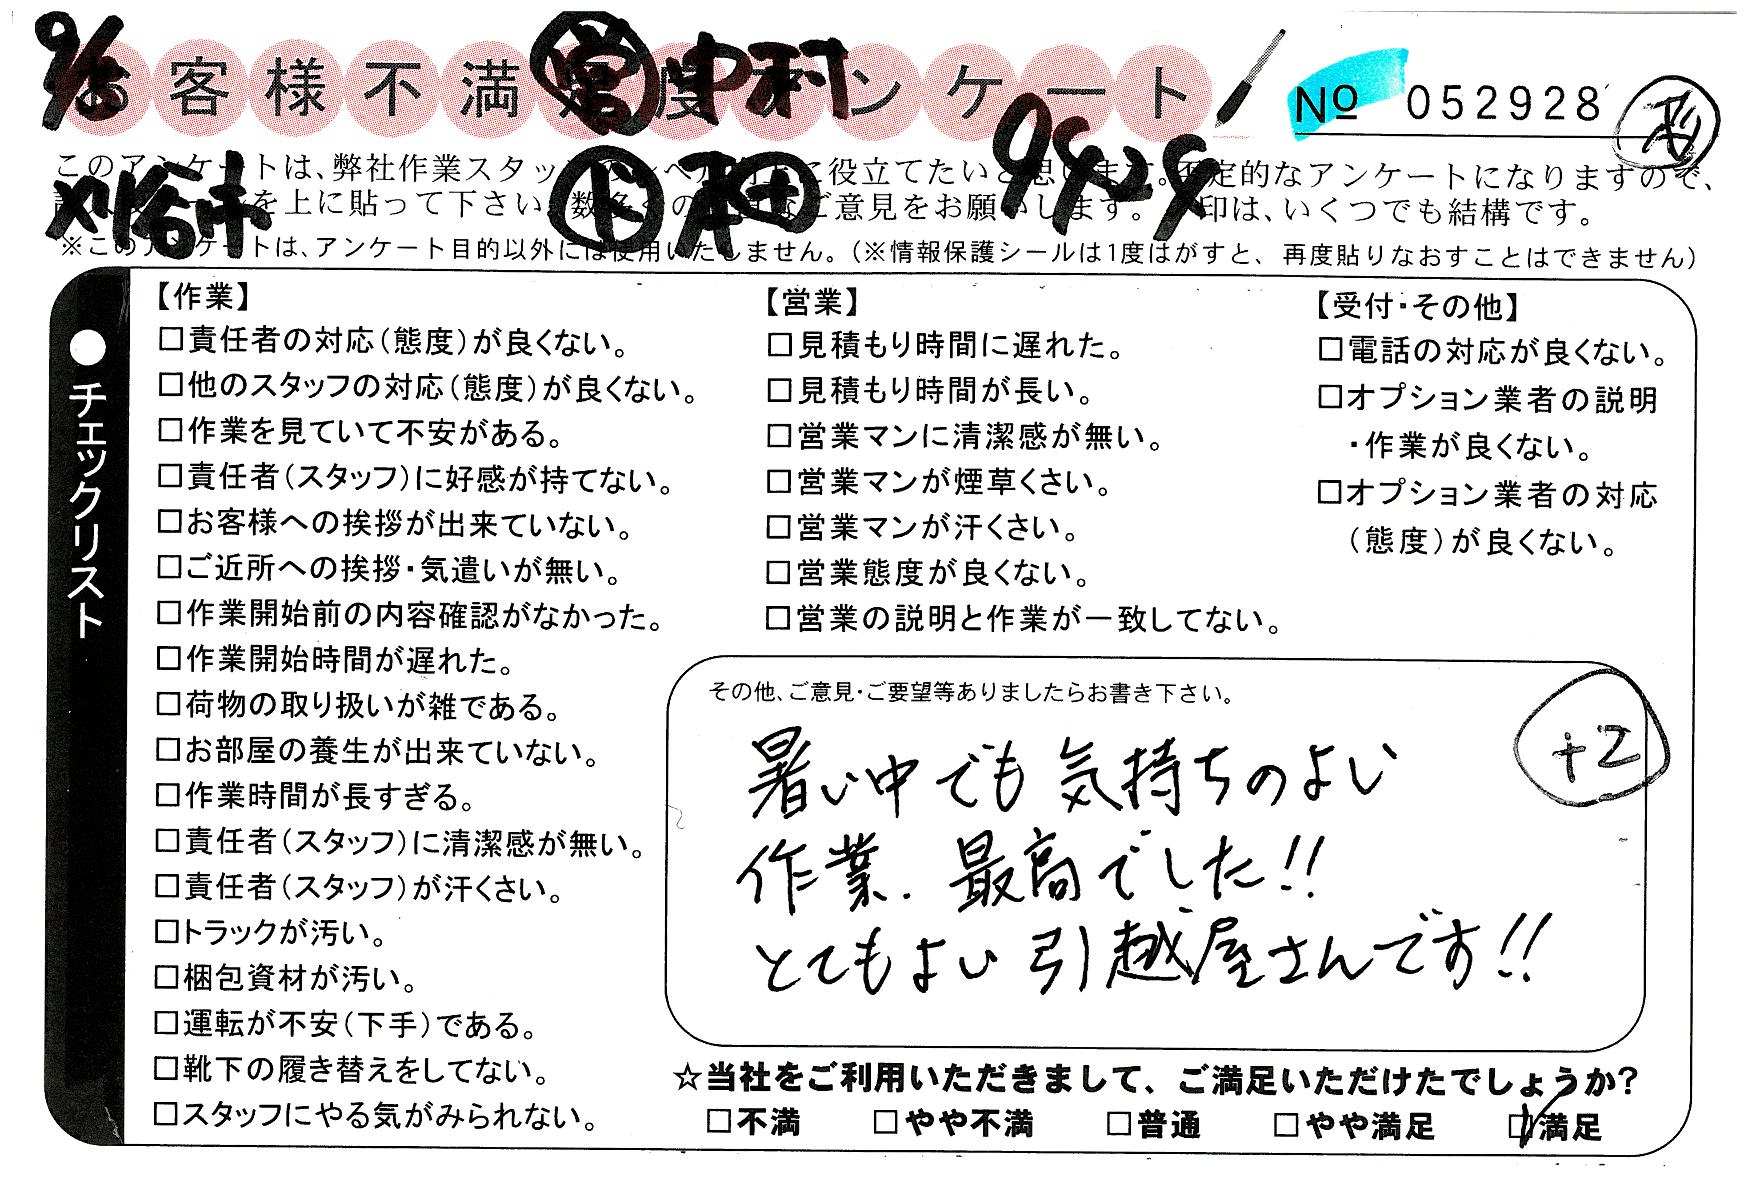 9/6
お客様不満足度アンケート
営 中村
No 052928
9424
刈谷市
ド 本田
このアンケートは、弊社作業スタッフのレベル向上に役立てたいと思います。否定的なアンケートになりますので、
シールを上に貼って下さい。数多くの ご意見をお願いします。 印は、いくつでも結構です。
※このアンケートは、アンケート目的以外には使用いたしません。(※情報保護シールは1度はがすと、再度貼りなおすことはできません)
●チェックリスト
【作業】
□責任者の対応(態度)が良くない。
□他のスタッフの対応(態度)が良くない。
□作業を見ていて不安がある。
□責任者(スタッフ)に好感が持てない。
□お客様への挨拶が出来ていない。
□ご近所への挨拶・気遣いが無い。
□作業開始前の内容確認がなかった。
□作業開始時間が遅れた。
□荷物の取り扱いが雑である。
□お部屋の養生が出来ていない。
□作業時間が長すぎる。
□責任者(スタッフ)に清潔感が無い。
□責任者(スタッフ)が汗くさい。
□トラックが汚い。
□梱包資材が汚い。
□運転が不安(下手)である。
□靴下の履き替えをしてない。
□スタッフにやる気がみられない。
【営業】
□見積もり時間に遅れた。
□見積もり時間が長い。
□営業マンに清潔感が無い。
□営業マンが煙草くさい。
□営業マンが汗くさい。
□営業態度が良くない。
□営業の説明と作業が一致してない。
【受付・その他】
□電話の対応が良くない。
□オプション業者の説明
・作業が良くない。
□オプション業者の対応
(態度)が良くない。
その他、ご意見・ご要望等ありましたらお書き下さい。
+2
暑い中でも気持ちのよい
作業、最高でした!!
とてもよい引越屋さんです!!
☆当社をご利用いただきまして、ご満足いただけたでしょうか?
□不満 □やや不満 □普通 □やや満足 ☑満足